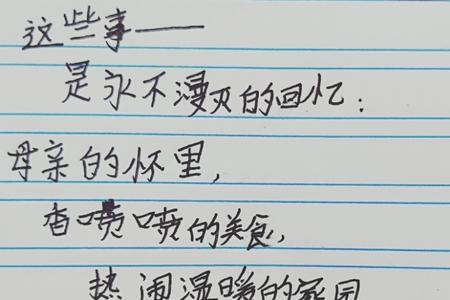 这些事——
是永不漫灭的回忆：
母亲的怀里，
香喷喷的美食，
热闹温暖的家园